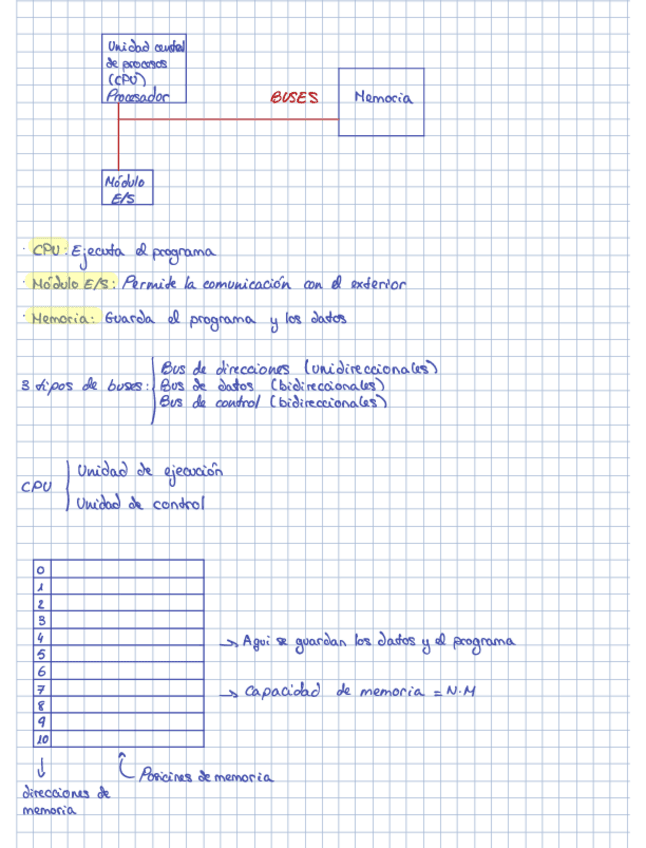 Unidad central
de procesos
(CPU)
Procesador
BUSES
Memoria
Módulo
E/S
· CPU: Ejecuta el programa
· Módulo E/S: Permite la comunicación con el exterior
· Memoria: Guarda el programa y los datos
Bus de direcciones (unidireccionales)
3 tipos de buses: Bus de datos (bidireccionales)
Bus de control (bidireccionales)
Unidad de ejecución
CPU
Unidad de control
0
1
2
3
4 → Aqui se guardan los datos y el programa
5
6
7 → Capacidad de memoria = N·M
8
9
10
Posicines de memoria
direcciones de
memoria